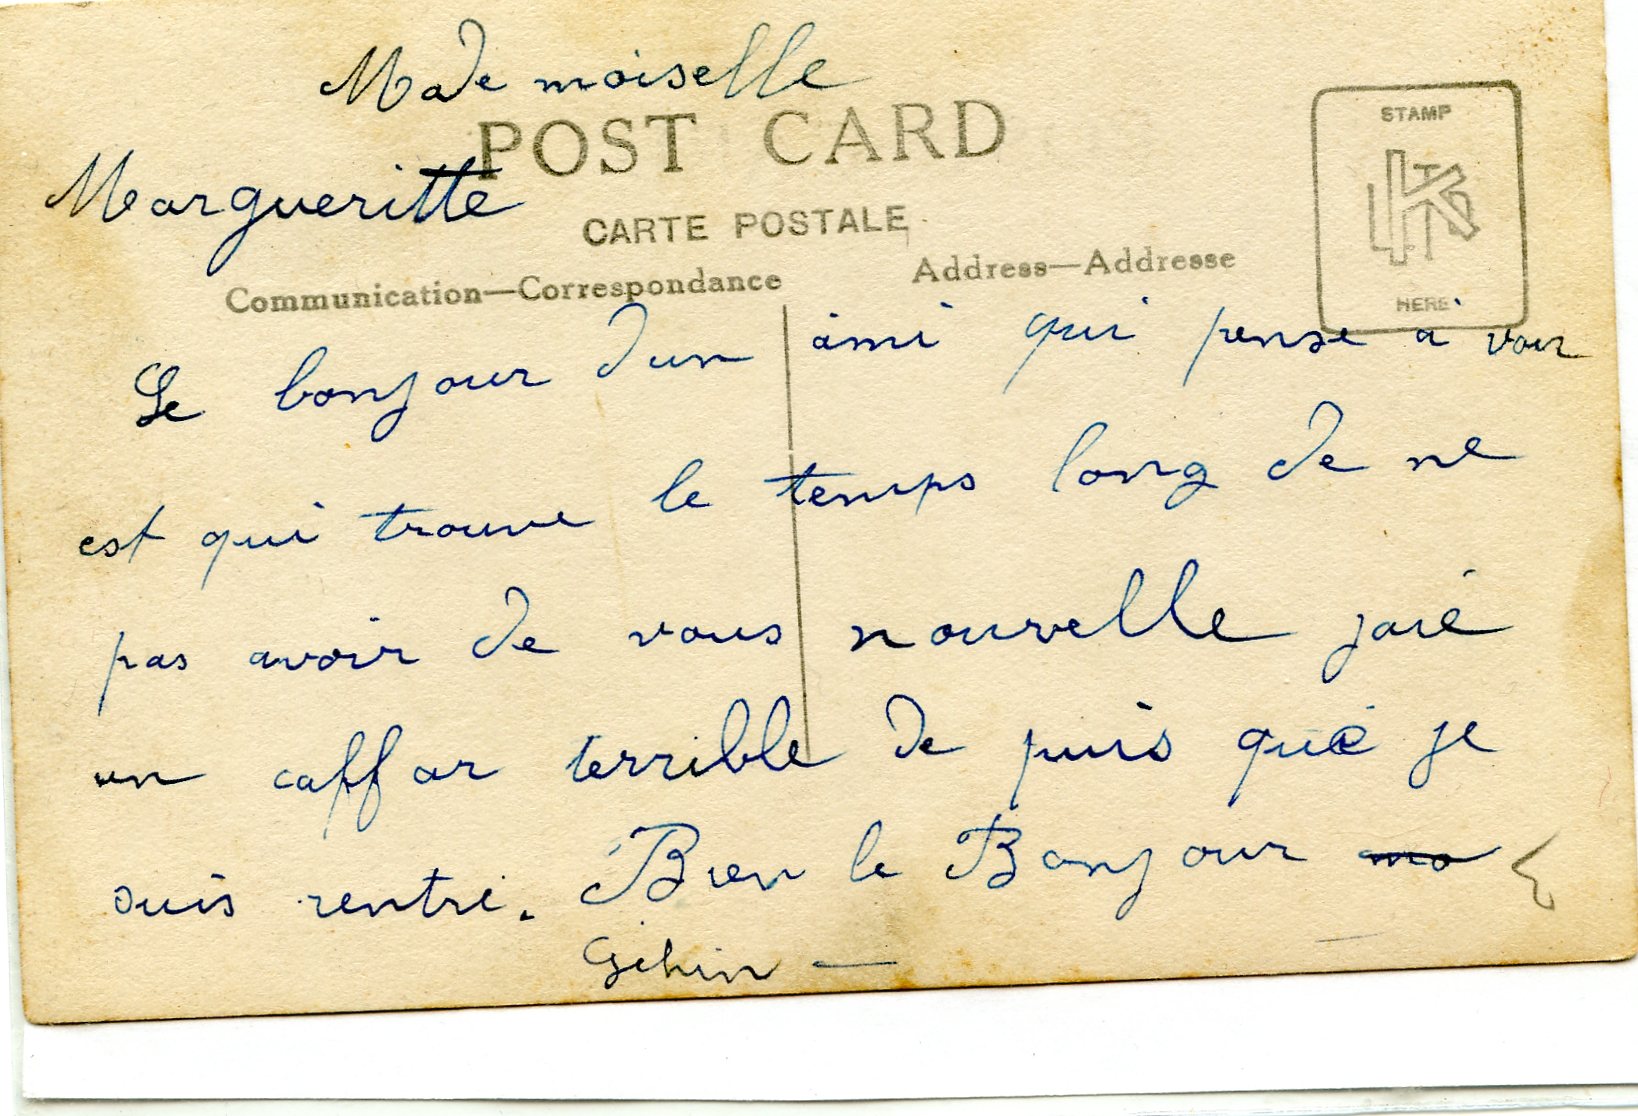 Mademoiselle
POST CARD
STAMP
Margueritte
CARTE POSTALE
Communication—Correspondance
Address—Addresse
HERE
Le bonjour dun ami qui pense a vour
est qui trouve le temps long de ne
pas avoir de vous nouvelle jaié
un caffar terrible de puis que je
suis rentré. Bien le Bonjour
Géhin —